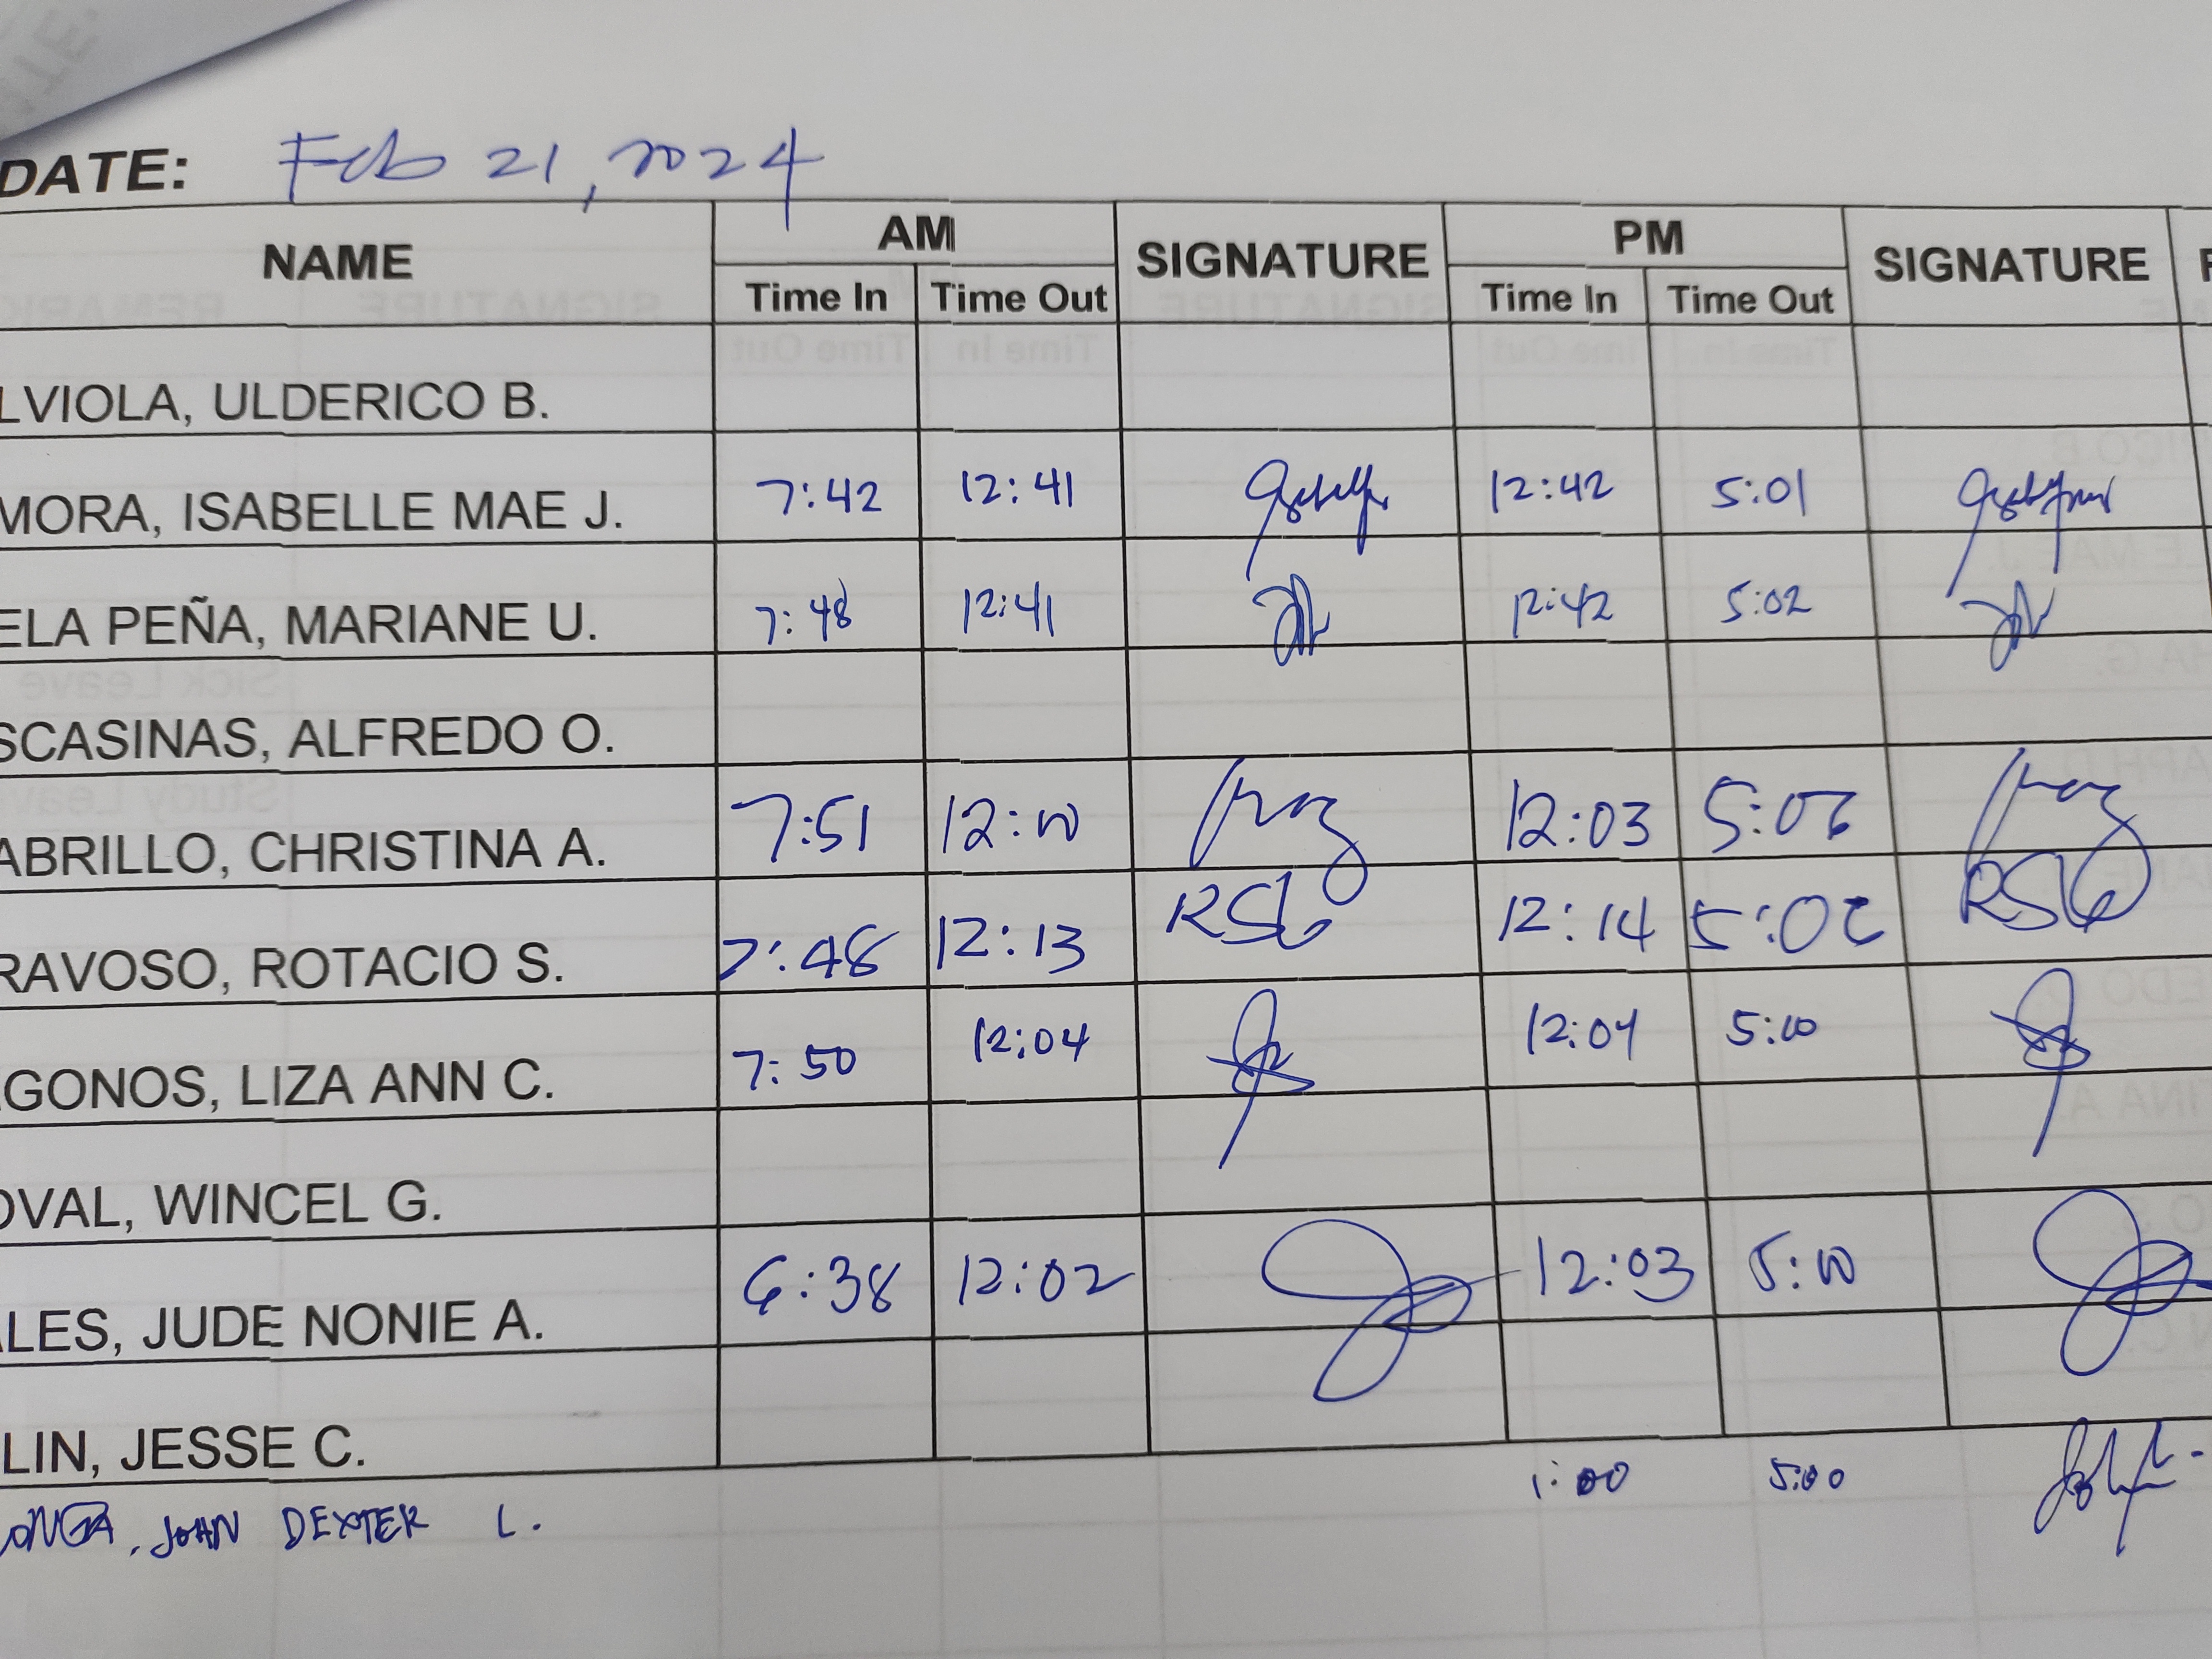 DATE: Feb 21, 2024
NAME AM SIGNATURE PM SIGNATURE
Time In Time Out Time In Time Out
LVIOLA, ULDERICO B.
MORA, ISABELLE MAE J. 7:42 12:41 12:42 5:01
ELA PEÑA, MARIANE U. 7:48 12:41 12:42 5:02
SCASINAS, ALFREDO O.
ABRILLO, CHRISTINA A. 7:51 12:00 12:03
RAVOSO, ROTACIO S. 7:48 12:13 RSG 12:14 5:02 RSG
GONOS, LIZA ANN C. 7:50 12:04 12:04 5:00
OVAL, WINCEL G.
ALES, JUDE NONIE A. 6:38 12:02 12:03 5:00
LIN, JESSE C.
LONGA, JOHN DEXTER L. 1:00 5:00